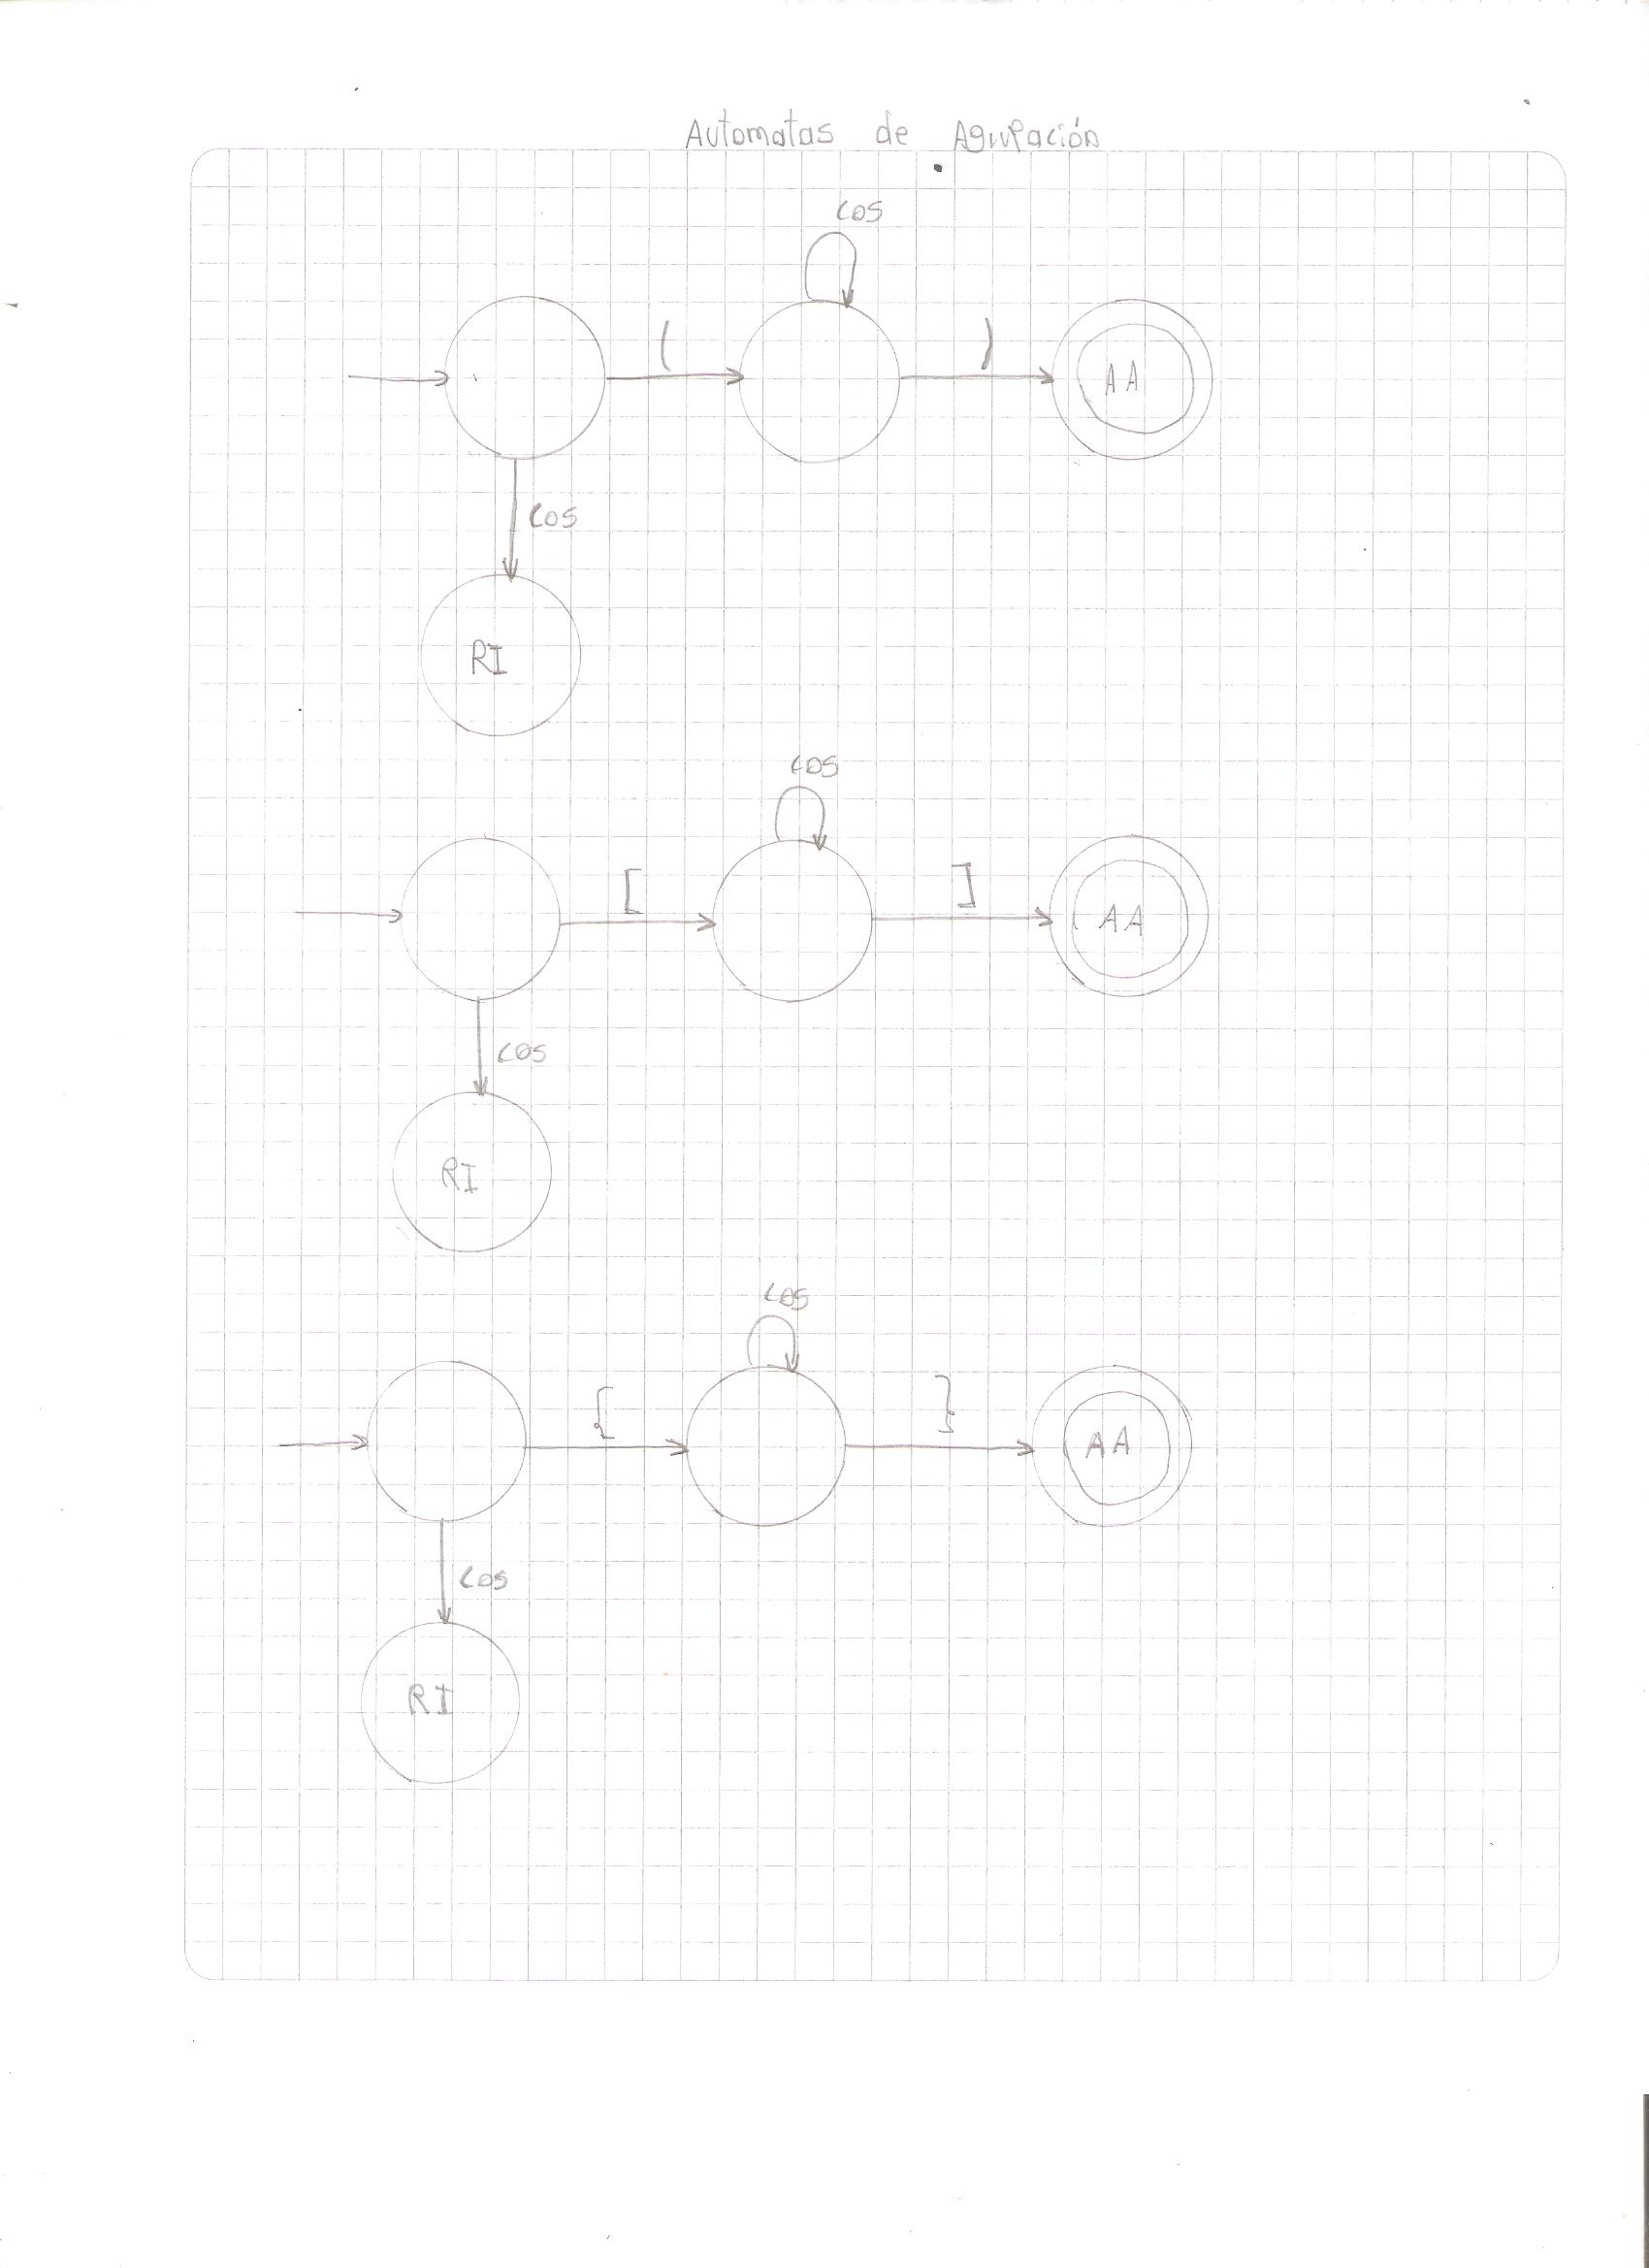 Automatas de Agrupación
cos
( )
AA
cos
RI
cos
[ ]
AA
cos
RI
cos
{ }
AA
cos
RI